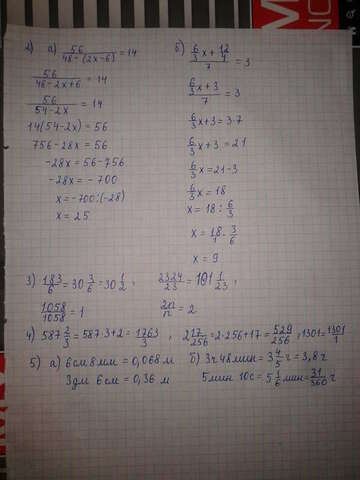 2) a) 56/(48-(2x-6)) = 14
56/(48-2x+6) = 14
56/(54-2x) = 14
14(54-2x) = 56
756-28x = 56
-28x = 56-756
-28x = -700
x = -700:(-28)
x = 25
б) (6/3 x + 12/4)/7 = 3
(6/3 x + 3)/7 = 3
6/3 x + 3 = 3·7
6/3 x + 3 = 21
6/3 x = 21-3
6/3 x = 18
x = 18 : 6/3
x = 18/1 · 3/6
x = 9
3) 183/6 = 30 3/6 = 30 1/2 ; 2324/23 = 101 1/23 ;
1058/1058 = 1 2n/n = 2
4) 587 2/3 = 587·3+2 = 1763/3 , 2 17/256 = 2·256+17 = 529/256 , 1301 = 1301/1
5) а) 6см 8мм = 0,068м б) 3ч 48мин = 3 4/5 ч = 3,8ч
3дм 6см = 0,36м 5мин 10с = 5 1/6 мин = 31/360 ч